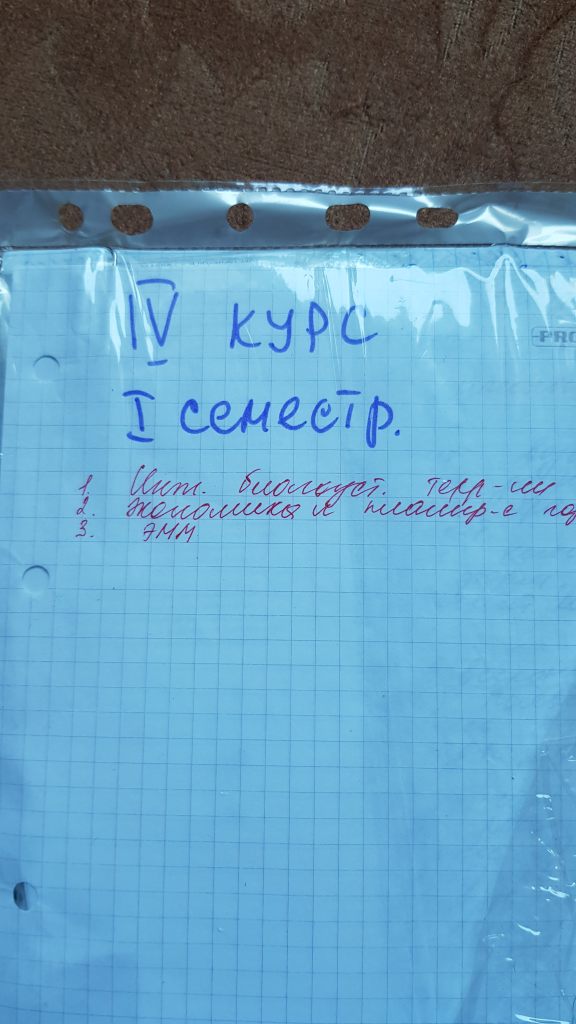 IV курс
I семестр.
PRO
1. Инж. благоуст. терр-ии
2. Экономика и планир-е гор
3. ЭММ